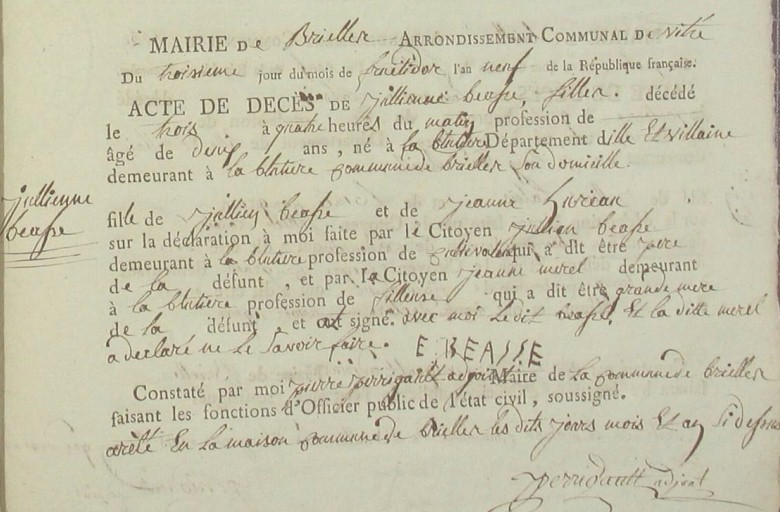 MAIRIE De Brielles ARRONDISSEMENT COMMUNAL De vitré
Du troisieme jour du mois de fructidor l'an neuf de la République française.
ACTE DE DECÈS DE jullienne beasse, filles. décédé
le trois à quatre heures du matin profession de
âgé de deux ans, né à la blutiere Département dille Et villaine
demeurant à la blutiere commune de brielles son domicille.
jullienne
beasse
fille de jullien beasse et de jeanne
sur la déclaration à moi faite par le Citoyen jullien beasse
demeurant à la blutiere profession de qui a dit être pere
de la défunt, et par la Citoyen jeanne merel demeurant
à la blutiere profession de filleuse qui a dit être grande mere
de la défunt et ont signé. avec moi Ledit beasse, Et la ditte merel
a declaré ne Le Savoir faire. E BEASSE
Constaté par moi pierre perrigault adjoint Maire de La commune de brielles
faisant les fonctions d'Officier public de l'état civil, soussigné.
arêté En La maison commune de brielles les dits jours mois Et an Si dessus
perrigault adjoint